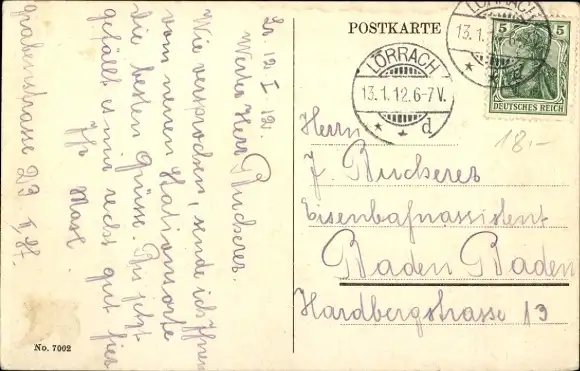 POSTKARTE
LÖRRACH
13.1.12.6-7V.
d
LÖRRACH
13.1.12.6-7V.
5 5
DEUTSCHES REICH
18.-
Herrn
J. Bucherer
Eisenbahnassistent
Baden Baden
Hardbergstrasse 13
Lö. 12. I. 12.
Werter Herr Bucherer.
Wie versprochen, sende ich Ihnen
vom neuen Stationsorte
die besten Grüsse. Bis jetzt
gefällt es mir recht gut hier
Ihr
Grabenstrasse 23 II. St.
No. 7002